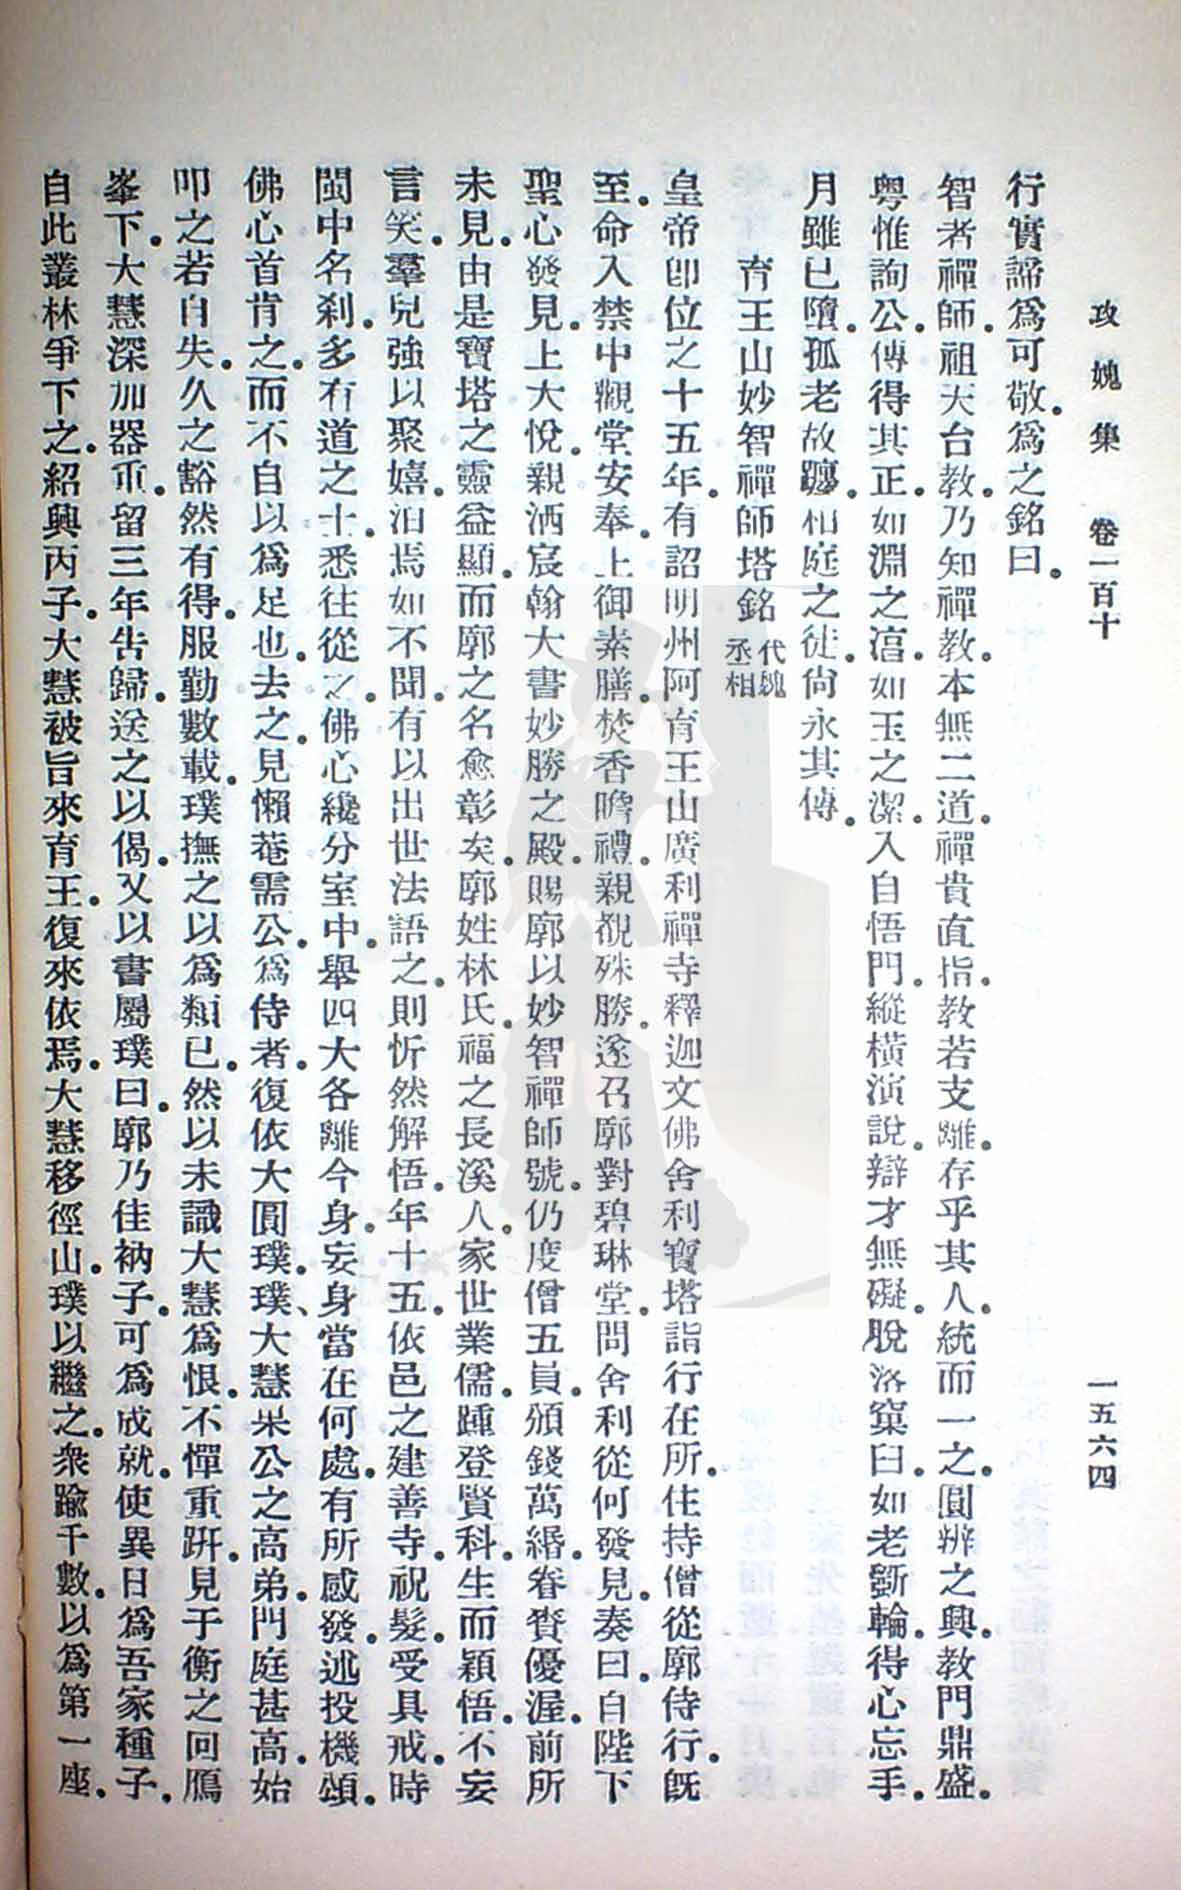 攻媿集 卷一百十 一五六四
行實諦爲可敬。爲之銘曰。
智者禪師。祖天台教。乃知禪教。本無二道。禪貴直指。教若支離。存乎其人。統而一之。圓辨之興。教門鼎盛。
粤惟詢公。傳得其正。如淵之渟。如玉之潔。入自悟門。縱橫演說。辯才無礙。脫落窠臼。如老斲輪。得心忘手。
月雖已墮。孤老故躔。相庭之徒。尙永其傳。
育王山妙智禪師塔銘 代魏丞相
皇帝卽位之十五年。有詔明州阿育王山廣利禪寺釋迦文佛舍利寶塔詣行在所。住持僧從廓侍行。旣
至。命入禁中觀堂安奉。上御素膳。焚香瞻禮。親覩殊勝。遂召廓對碧琳堂。問舍利從何發見。奏曰。自陛下
聖心發見。上大悅。親洒宸翰。大書妙勝之殿。賜廓以妙智禪師號。仍度僧五員。頒錢萬緡。眷賚優渥。前所
未見。由是寶塔之靈益顯。而廓之名愈彰矣。廓姓林氏。福之長溪人。家世業儒。踵登賢科。生而穎悟。不妄
言笑。羣兒強以聚嬉。泊焉如不聞。有以出世法語之。則忻然解悟。年十五。依邑之建善寺。祝髮。受具戒。時
閩中名刹。多有道之士。悉往從之。佛心纔分室中。舉四大各離今身。妄身當在何處。有所感發。述投機頌。
佛心首肯之。而不自以爲足也。去之。見懶菴需公。爲侍者。復依大圓璞。璞、大慧杲公之高弟。門庭甚高。始
叩之若自失。久之豁然有得。服勤數載。璞撫之以爲類已。然以未識大慧爲恨。不憚重趼。見于衡之回鴈
峯下。大慧深加器重。留三年告歸。送之以偈。又以書屬璞曰。廓乃佳衲子。可爲成就。使異日爲吾家種子。
自此叢林爭下之。紹興丙子。大慧被旨來育王。復來依焉。大慧移徑山。璞以繼之。衆踰千數。以爲第一座。